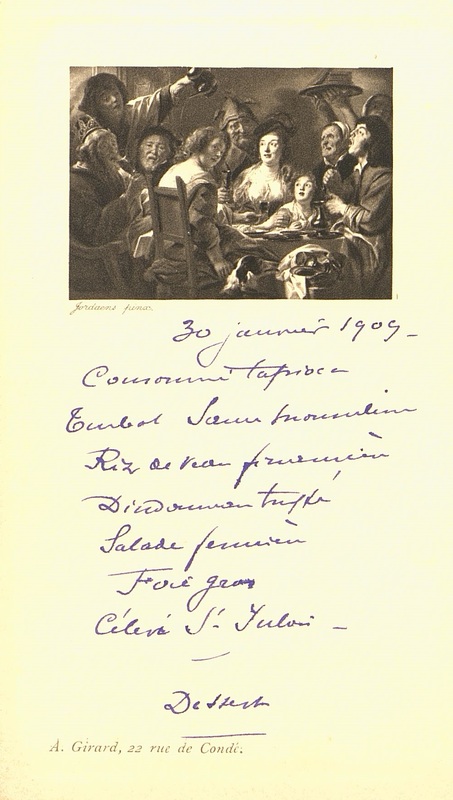 Jordaens pinxt.
30 janvier 1909 -
Consommé tapioca
Turbot Sauce mousseline
Riz de veau financière
Dindonneau truffé
Salade fermière
Foie gras
Céleri St Julien -
Dessert
A. Girard, 22 rue de Condé.